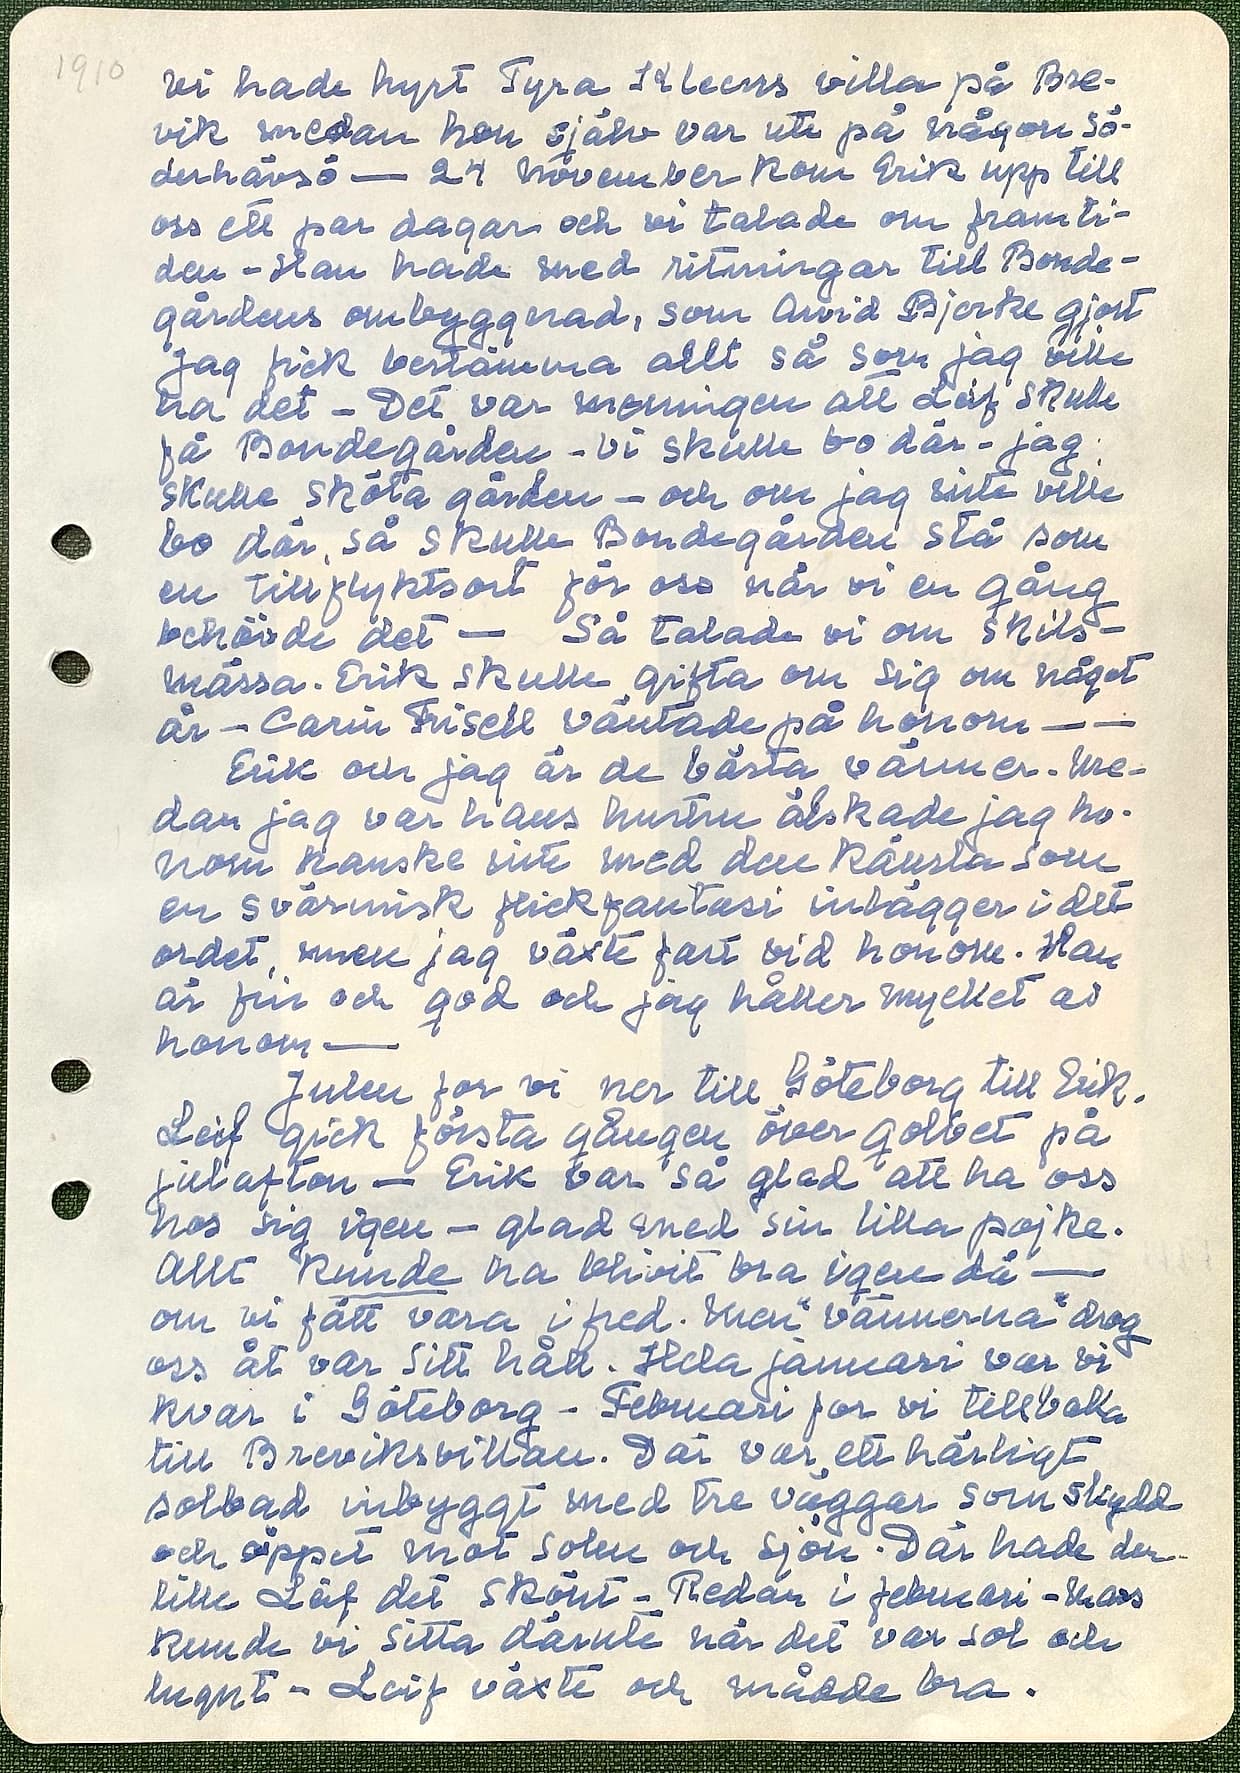 1910
vi hade hyrt Tyra Kleens villa på Bre-
vik medan hon själv var ute på någon Sö-
derhavsö — 24 november kom Erik upp till
oss ett par dagar och vi talade om framti-
den – Han hade med ritningar till Bonde-
gårdens ombyggnad, som Arvid Bjerke gjort
Jag fick bestämma allt så som jag ville
ha det – Det var meningen att Leif skulle
få Bondegården – Vi skulle bo där – jag
skulle sköta gården – och om jag inte ville
bo där, så skulle Bondegården stå som
en tillflyktsort för oss när vi en gång
behövde det — Så talade vi om skils-
mässa. Erik skulle gifta om sig om något
år – Carin Frisell väntade på honom — —
Erik och jag är de bästa vänner. Me-
dan jag var hans hustru älskade jag ho-
nom kanske inte med den känsla som
en svärmisk flickfantasi inlägger i det
ordet, men jag växte fast vid honom. Han
är fin och god och jag håller mycket av
honom —
Julen for vi ner till Göteborg till Erik.
Leif gick första gången över golvet på
julafton – Erik var så glad att ha oss
hos sig igen – glad med sin lilla pojke.
Allt kunde ha blivit bra igen då —
om vi fått vara i fred. Men "vännerna" drog
oss åt var sitt håll. Hela januari var vi
kvar i Göteborg – Februari for vi tillbaka
till Breviksvillan. Där var ett härligt
solbad inbyggt med tre väggar som skydd
och öppet mot solen och sjön. Där hade den
lille Leif det skönt – Redan i februari – mars
kunde vi sitta därute när det var sol och
lugnt – Leif växte och mådde bra.